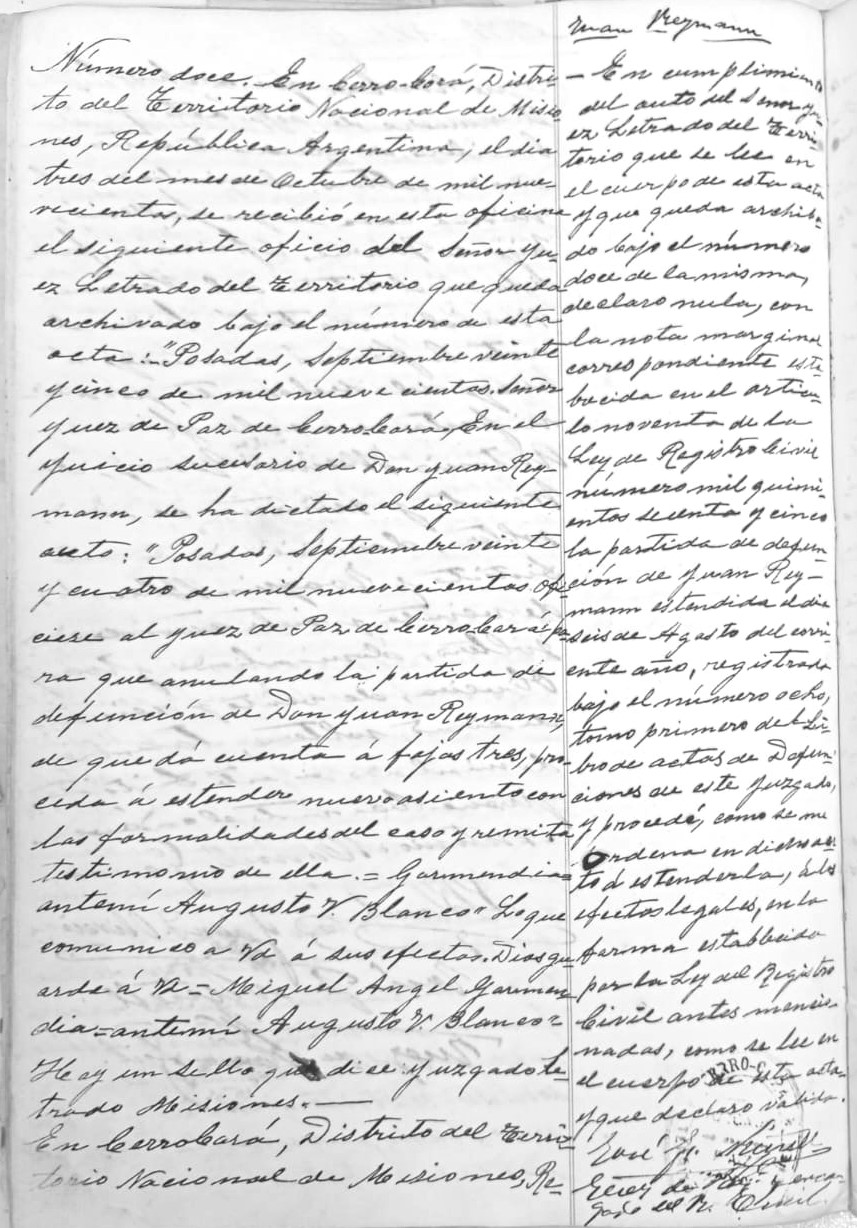 Número doce. En Cerro-Corá, Distri-
to del Territorio Nacional de Misio
nes, República Argentina, el dia
tres del mes de Octubre de mil nue-
vecientos, se recibió en esta oficina
el siguiente oficio del Señor Yu-
ez Letrado del Territorio que queda
archivado bajo el número de esta
acta:-"Posadas, Septiembre veinte
y cinco de mil nueve cientos. Señor
Yuez de Paz de Cerro-Corá, En el
Yuicio sucesorio de Don Yuan Rey-
mann, se ha dictado el siguiente
auto: "Posadas, Septiembre veinte
y cuatro de mil nuevecientos ofi-
ciese al Yuez de Paz de Cerro-Corá pa-
ra que anulando la partida de
defunción de Don Yuan Reymann,
de que dá cuenta á fojas tres, pro
ceda á estender nuevo asiento con
las formalidades del caso y remita
testimonio de ella.= Garmendia=
antemí Augusto V. Blanco" Lo que
comunico a Vd á sus efectos. Dios gu-
arde á Vd= Miguel Angel Garmen
dia=antemí Augusto V. Blanco=
Hay un sello que dice: Yuzgado Le-
trado Misiones.—
En Cerro Corá, Distrito del Terri-
torio Nacional de Misiones, Re-
Yuan Reymann
— En cumplimiento
del auto del Señor Yu-
ez Letrado del Terri-
torio que se lee en
el cuerpo de esta acta
y que queda archiva-
do bajo el número
doce de la misma,
declaro nula, con
la nota marginal
correspondiente esta-
blecida en el articu-
lo noventa de la
Ley de Registro Civil
número mil quini-
entos sesenta y cinco
la partida de defun-
ción de Yuan Rey-
mann estendida el dia
seis de Agosto del corri-
ente año, registrada
bajo el número ocho,
tomo primero del Li-
bro de actas de Defun-
ciones de este Yuzgado,
y procedé, como se me
Ordena en dicho au-
to á estenderla, á los
efectos legales, en la
forma establecida
por la Ley del Registro
Civil antes mencio-
nadas, como se lee en
el cuerpo de esta acta
y que declaro válida.
José
Yuez de Paz y encar-
gado del R. Civil